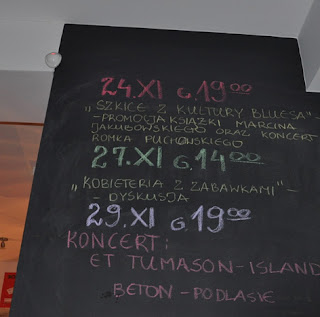 24.XI G.19⁰⁰
"SZKICE Z KULTURY BLUESA" -
- PROMOCJA KSIĄŻKI MARCINA
JAKUBOWSKIEGO ORAZ KONCERT
ROMKA PUCHOWSKIEGO
27.XI G.14⁰⁰
"KOBIETERIA Z ZABAWKAMI" -
- DYSKUSJA
29.XI G.19⁰⁰
KONCERT:
ET TUMASON - ISLAND
BETON - PODLASIE